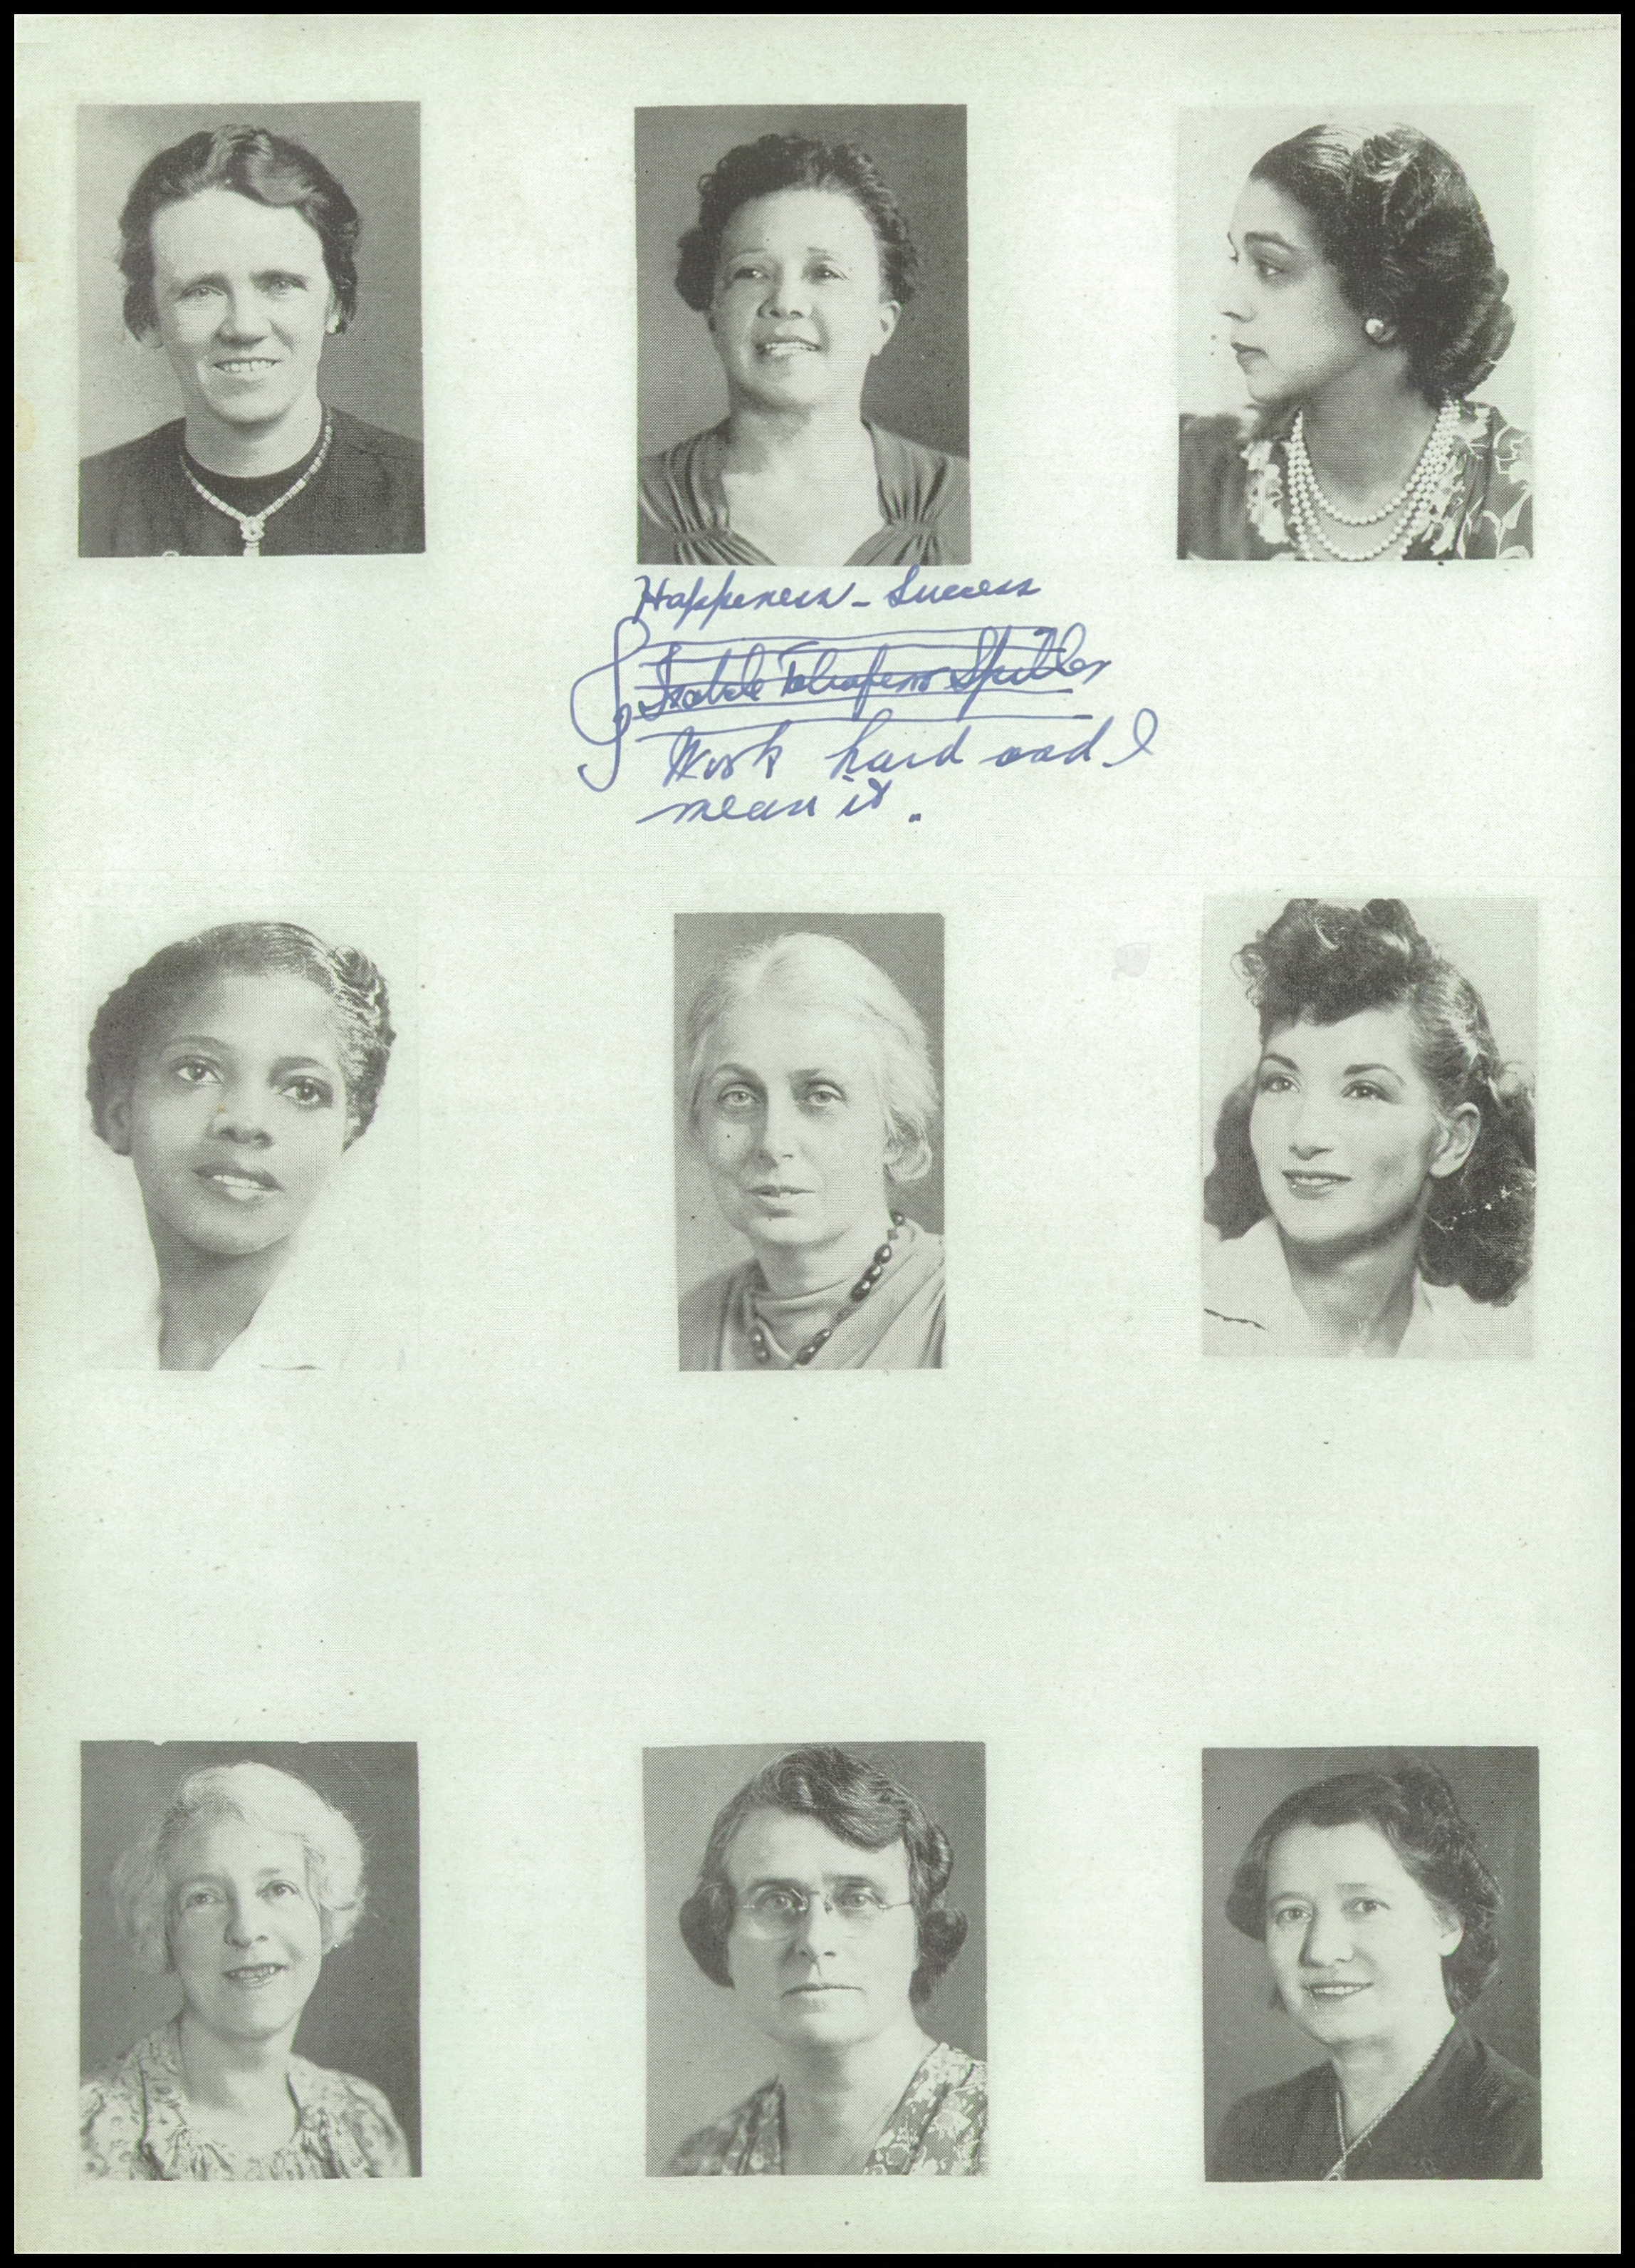 Happeness - Success
Isabele Taliaferro Spiller
Work hard and I
mean it.